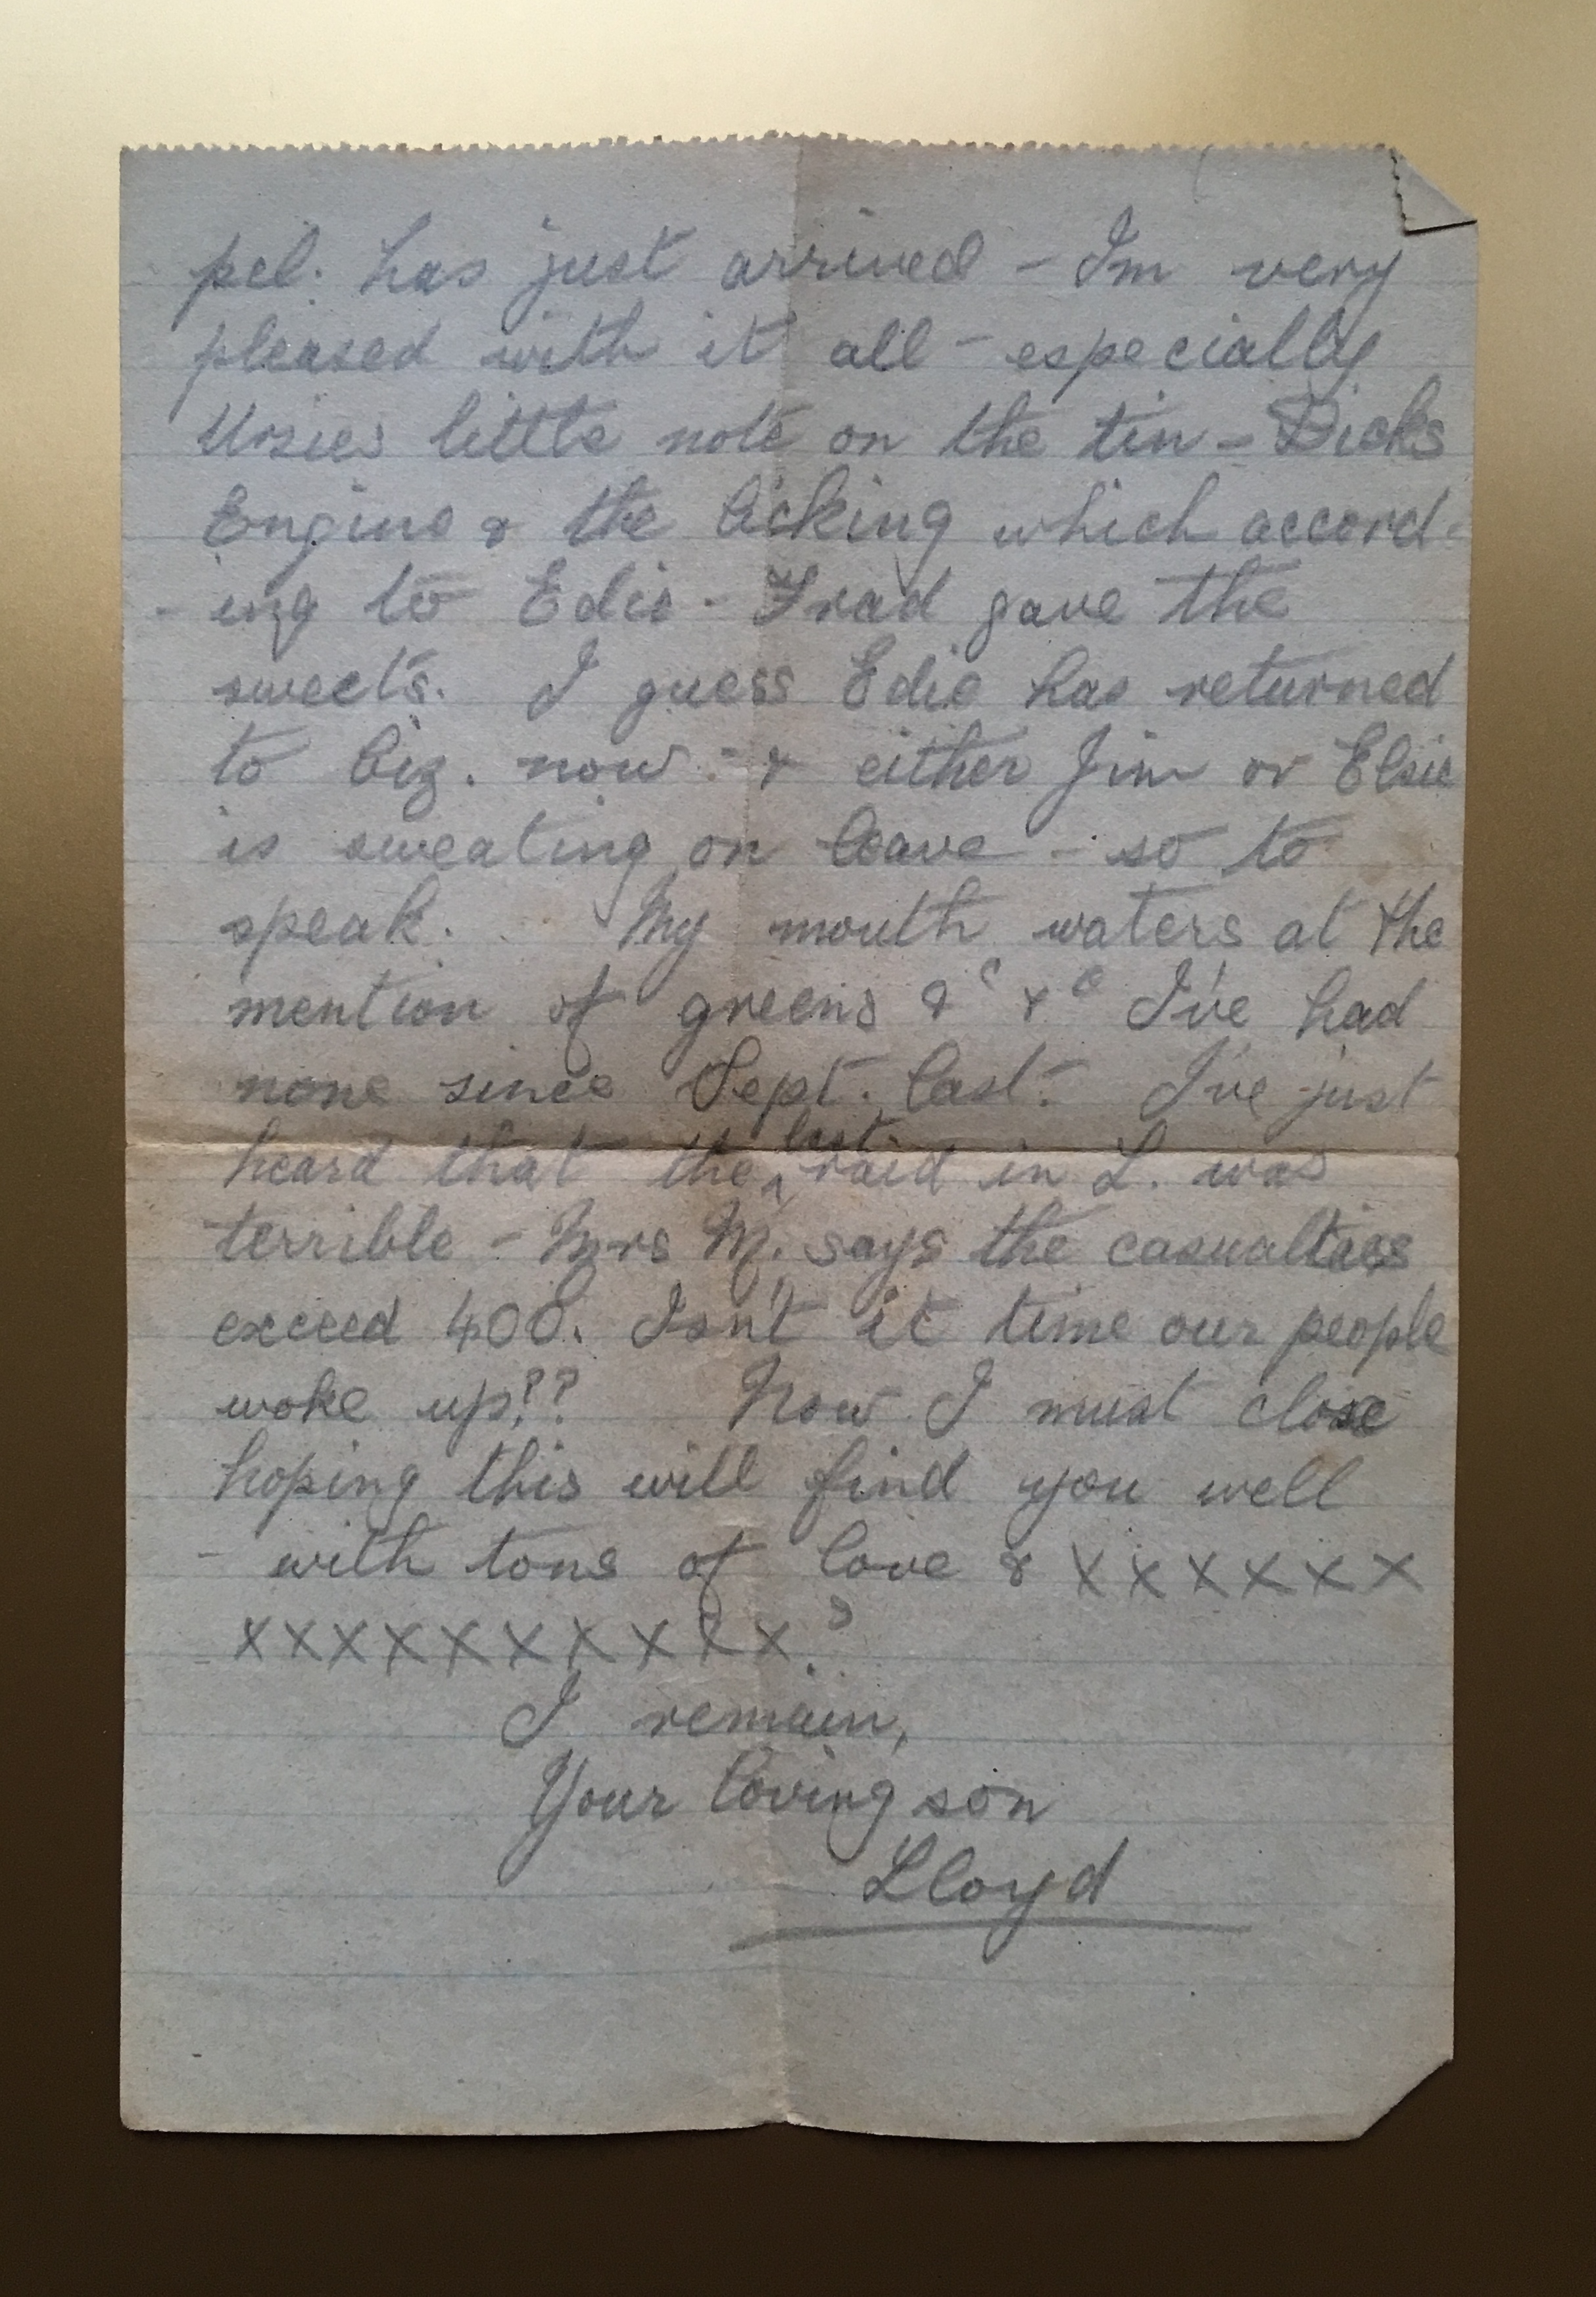 pcl. has just arrived - I'm very
pleased with it all - especially
Ursies little note on the tin - Dicks
Engine & the licking which accord-
- ing to Edie - Frad gave the
sweets. I guess Edie has returned
to biz. now - & either Jim or Elsie
is sweating on leave - so to
speak. My mouth waters at the
mention of greens &c &c I've had
none since Sept. last. I've just
heard that the last raid in L. was
terrible - Mrs M. says the casualties
exceed 400. Isn't it time our people
woke up?? Now I must close
hoping this will find you well
- with tons of love & xxxxxx
xxxxxxxxxxx.s
I remain,
Your loving son
Lloyd